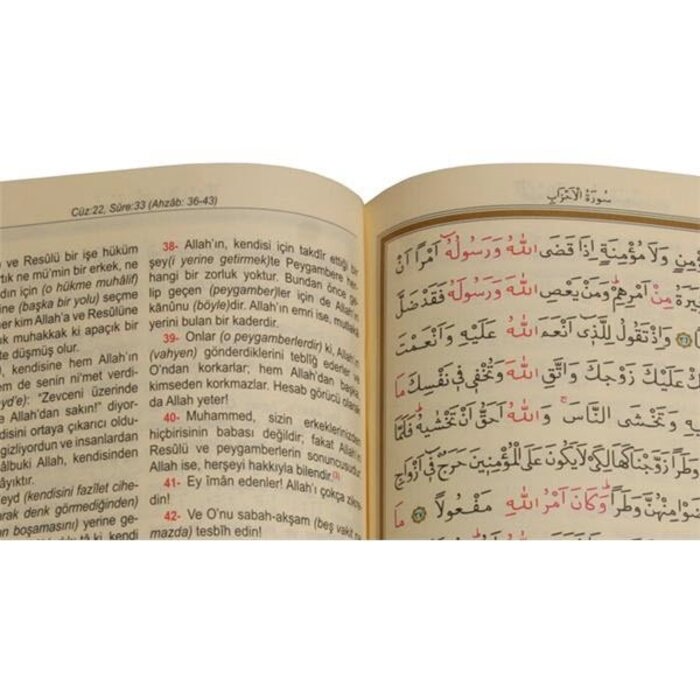 Cüz:22, Sûre:33 (Ahzâb: 36-43)
ve Resûlü bir işe hüküm
tık ne mü'min bir erkek, ne
dın için (o hükme muhâlif)
ine (başka bir yolu) seçme
er kim Allah'a ve Resûlüne
uk muhakkak ki apaçık bir
te düşmüş olur.
), kendisine hem Allah'ın
em de senin ni'met verdi-
eyd'e): "Zevceni üzerinde
e Allah'dan sakın!" diyor-
disini ortaya çıkarıcı oldu-
gizliyordun ve insanlardan
âlbuki Allah, kendisinden
âyıktır.
eyd (kendisini fazîlet cihe-
arak denk görmediğinden)
n boşamasını) yerine ge-
38- Allah'ın, kendisi için takdîr ettiği bir
şey(i yerine getirmek)te Peygambere her-
hangi bir zorluk yoktur. Bundan önce ge-
lip geçen (peygamber)ler için de Allah'ın
kânûnu (böyle)dir. Allah'ın emri ise, mutlaka
yerini bulan bir kaderdir.
39- Onlar (o peygamberlerdir) ki, Allah'ın
(vahyen) gönderdiklerini teblîğ ederler ve
O'ndan korkarlar; hem Allah'dan başka
kimseden korkmazlar. Hesab görücü olarak
da Allah yeter!
40- Muhammed, sizin erkeklerinizden
hiçbirisinin babası değildir; fakat Allah'ın
Resûlü ve peygamberlerin sonuncusudur.
Allah ise, herşeyi hakkıyla bilendir.
41- Ey îmân edenler! Allah'ı çokça zikre-
din!
42- Ve O'nu sabah-akşam (beş vakit na-
mazda) tesbîh edin!
سُورَةُ الْاَحْزَابِ
وَلَا مُؤْمِنَةٍ اِذَا قَضَى اللّٰهُ وَرَسُولُهُٓ اَمْرًا اَنْ
مِنْ اَمْرِهِمْ وَمَنْ يَعْصِ اللّٰهَ وَرَسُولَهُ فَقَدْ ضَلَّ
وَاِذْ تَقُولُ لِلَّذٓي اَنْعَمَ اللّٰهُ عَلَيْهِ وَاَنْعَمْتَ
عَلَيْكَ زَوْجَكَ وَاتَّقِ اللّٰهَ وَتُخْفٖي فٖي نَفْسِكَ مَا
وَتَخْشَى النَّاسَ وَاللّٰهُ اَحَقُّ اَنْ تَخْشٰيهُ فَلَمَّا
وَطَرًا زَوَّجْنَاكَهَا لِكَيْ لَا يَكُونَ عَلَى الْمُؤْمِنٖينَ حَرَجٌ فٖٓي اَزْوَاجِ
مِنْهُنَّ وَطَرًا وَكَانَ اَمْرُ اللّٰهِ مَفْعُولًا ﴿٣٧﴾ مَا